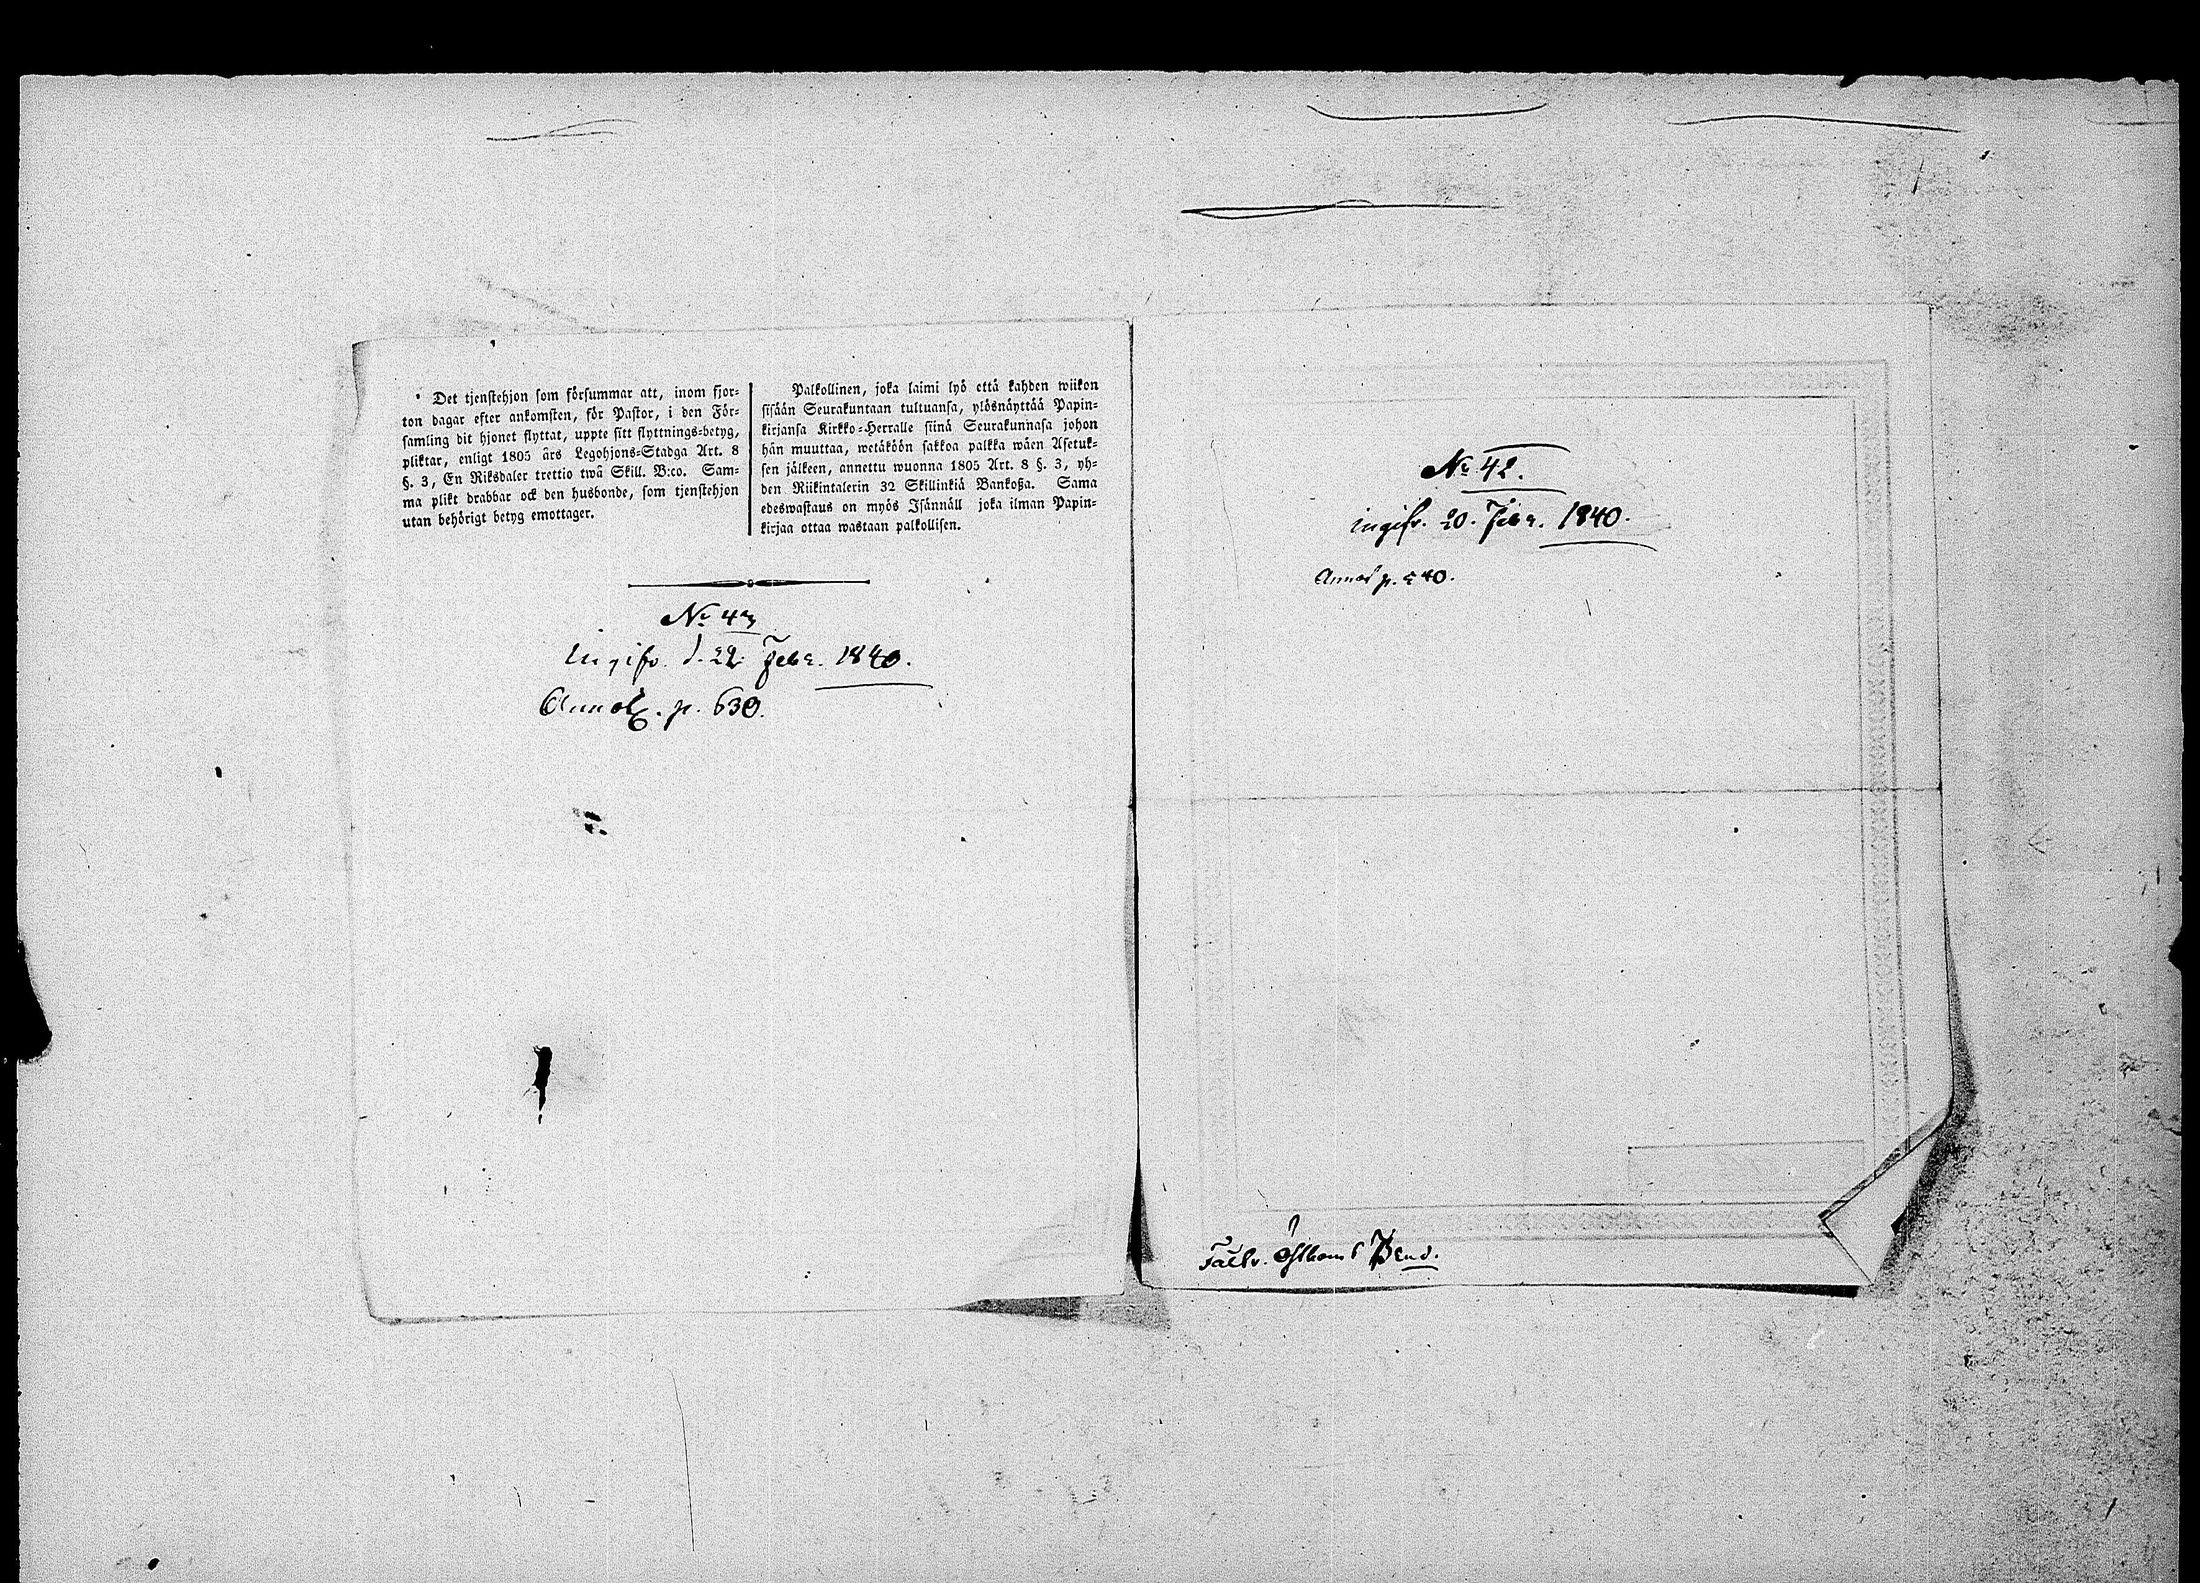 Det tjenstehjon som försummar att, inom fjor-
ton dagar efter ankomsten, för Pastor, i den För-
samling dit hjonet flyttat, uppte sitt flyttnings-betyg,
pliktar, enligt 1805 års Legohjons-Stadga Art. 8
§. 3, En Riksdaler trettio twå Skill. B:co. Sam-
ma plikt drabbar ock den husbonde, som tjenstehjon
utan behörigt betyg emottager.
Palkollinen, joka laimi lyö että kahden wiikon
sisään Seurakuntaan tultuansa, ylösnäyttää Papin-
kirjansa Kirkko-Herralle siinä Seurakunnasa johon
hän muuttaa, wetäköön sakkoa palkka wäen Asetuk-
sen jälkeen, annettu wuonna 1805 Art. 8 §. 3, yh-
den Riikintalerin 32 Skillinkiä Bankoßa. Sama
edeswastaus on myös Isännäll joka ilman Papin-
kirjaa ottaa wastaan palkollisen.
No 43
Ingifv. d. 22 Febr. 1840.
Annot. p. 630.
No 42.
ingifv. 20. Febr. 1840.
Annot p. 540.